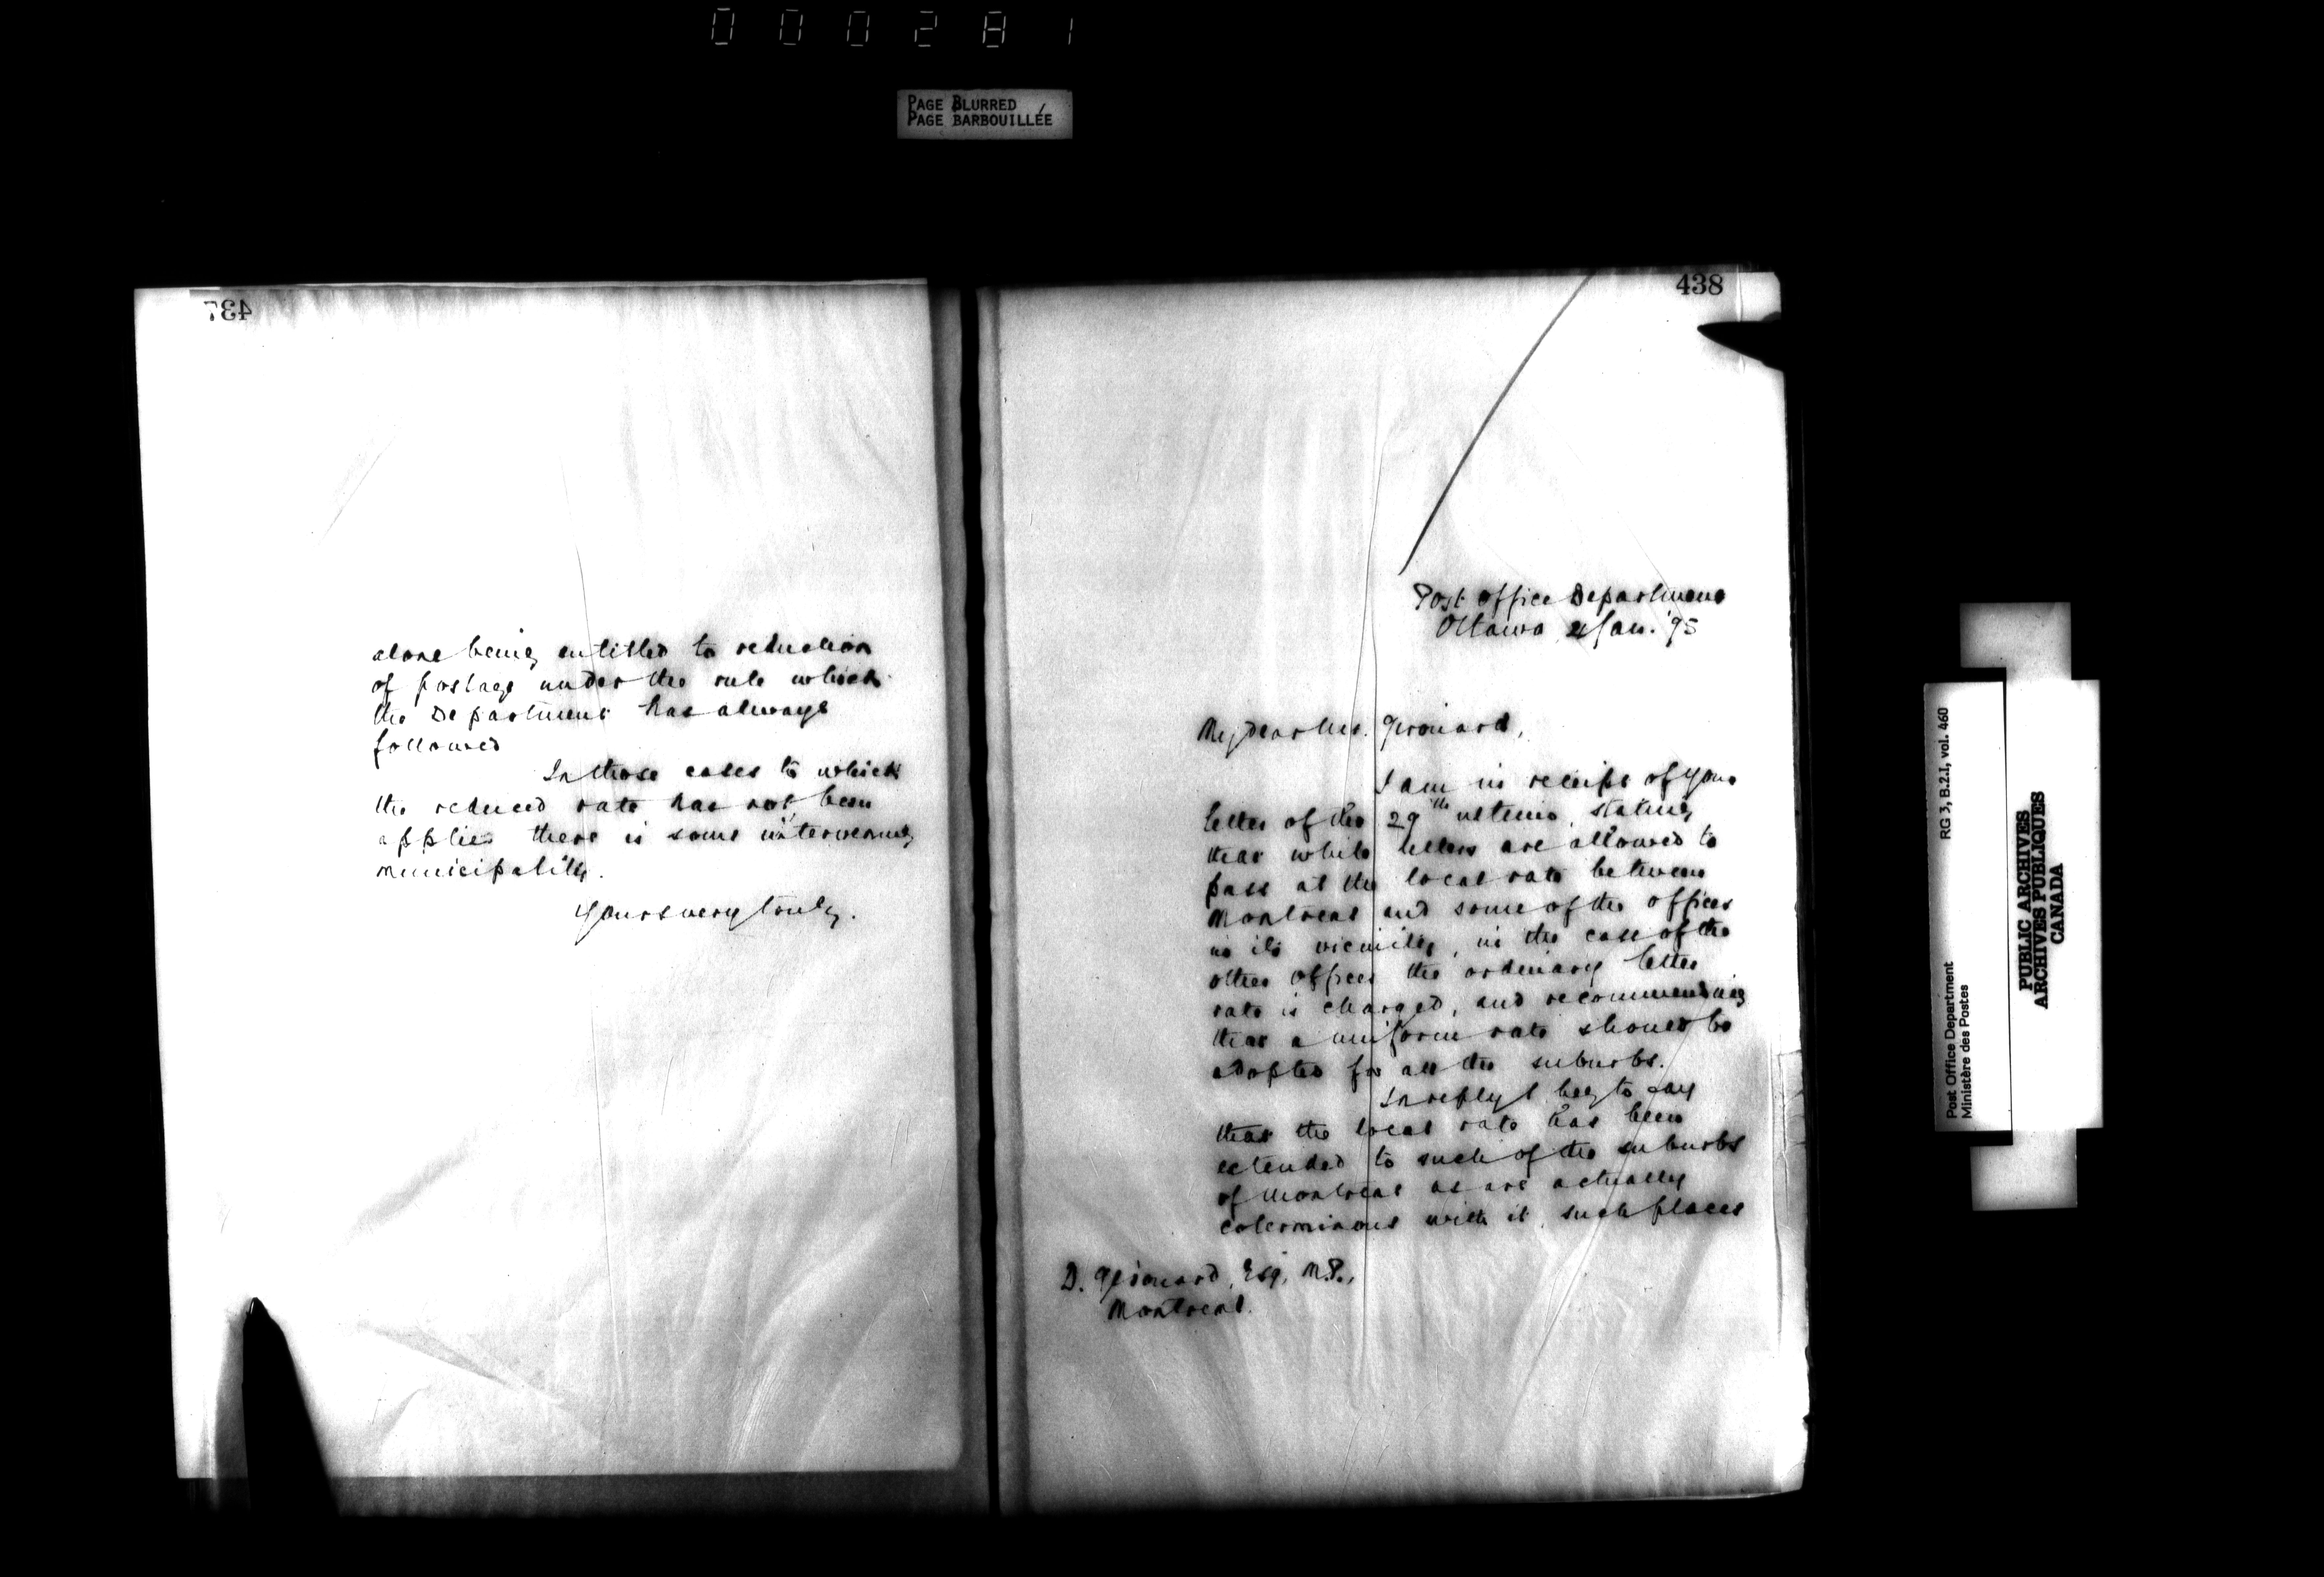 000281
PAGE BLURRED
PAGE BARBOUILLÉE
437
alone being entitled to reduction
of postage under the rule which
the Department has always
followed
In those cases to which
the reduced rate has not been
applied there is some intervening
municipality.
Yours very truly,
438
Post Office Department
Ottawa Jan. '95
My dear Mr. Girouard,
I am in receipt of your
letter of the 29th ultimo, stating
that while letters are allowed to
pass at the local rate between
Montreal and some of the offices
in its vicinity, in the case of the
other offices the ordinary letter
rate is charged, and recommending
that a uniform rate should be
adopted for all the suburbs.
In reply I beg to say
that the local rate has been
extended to such of the suburbs
of Montreal as are actually
coterminous with it, such places
D. Girouard, Esq, M.P.,
Montreal.
Post Office Department RG 3, B.2.I, vol. 460
Ministère des Postes
PUBLIC ARCHIVES
ARCHIVES PUBLIQUES
CANADA